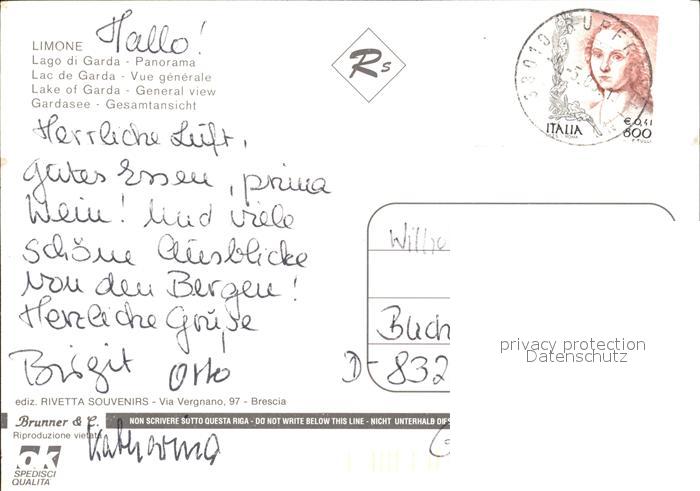 LIMONE
Lago di Garda - Panorama
Lac de Garda - Vue générale
Lake of Garda - General view
Gardasee - Gesamtansicht
Hallo!
Rs
ITALIA
€ 0,41
800
Herrliche Luft,
gutes Essen, prima
Wein! Und viele
schöne Ausblicke
von den Bergen!
Herzliche Grüße
Birgit Otto
Katharina
Buch
D-832
privacy protection
Datenschutz
ediz. RIVETTA SOUVENIRS - Via Vergnano, 97 - Brescia
Brunner & C.
NON SCRIVERE SOTTO QUESTA RIGA - DO NOT WRITE BELOW THIS LINE - NICHT UNTERHALB DIE
Riproduzione vietata
SPEDISCI
QUALITÀ